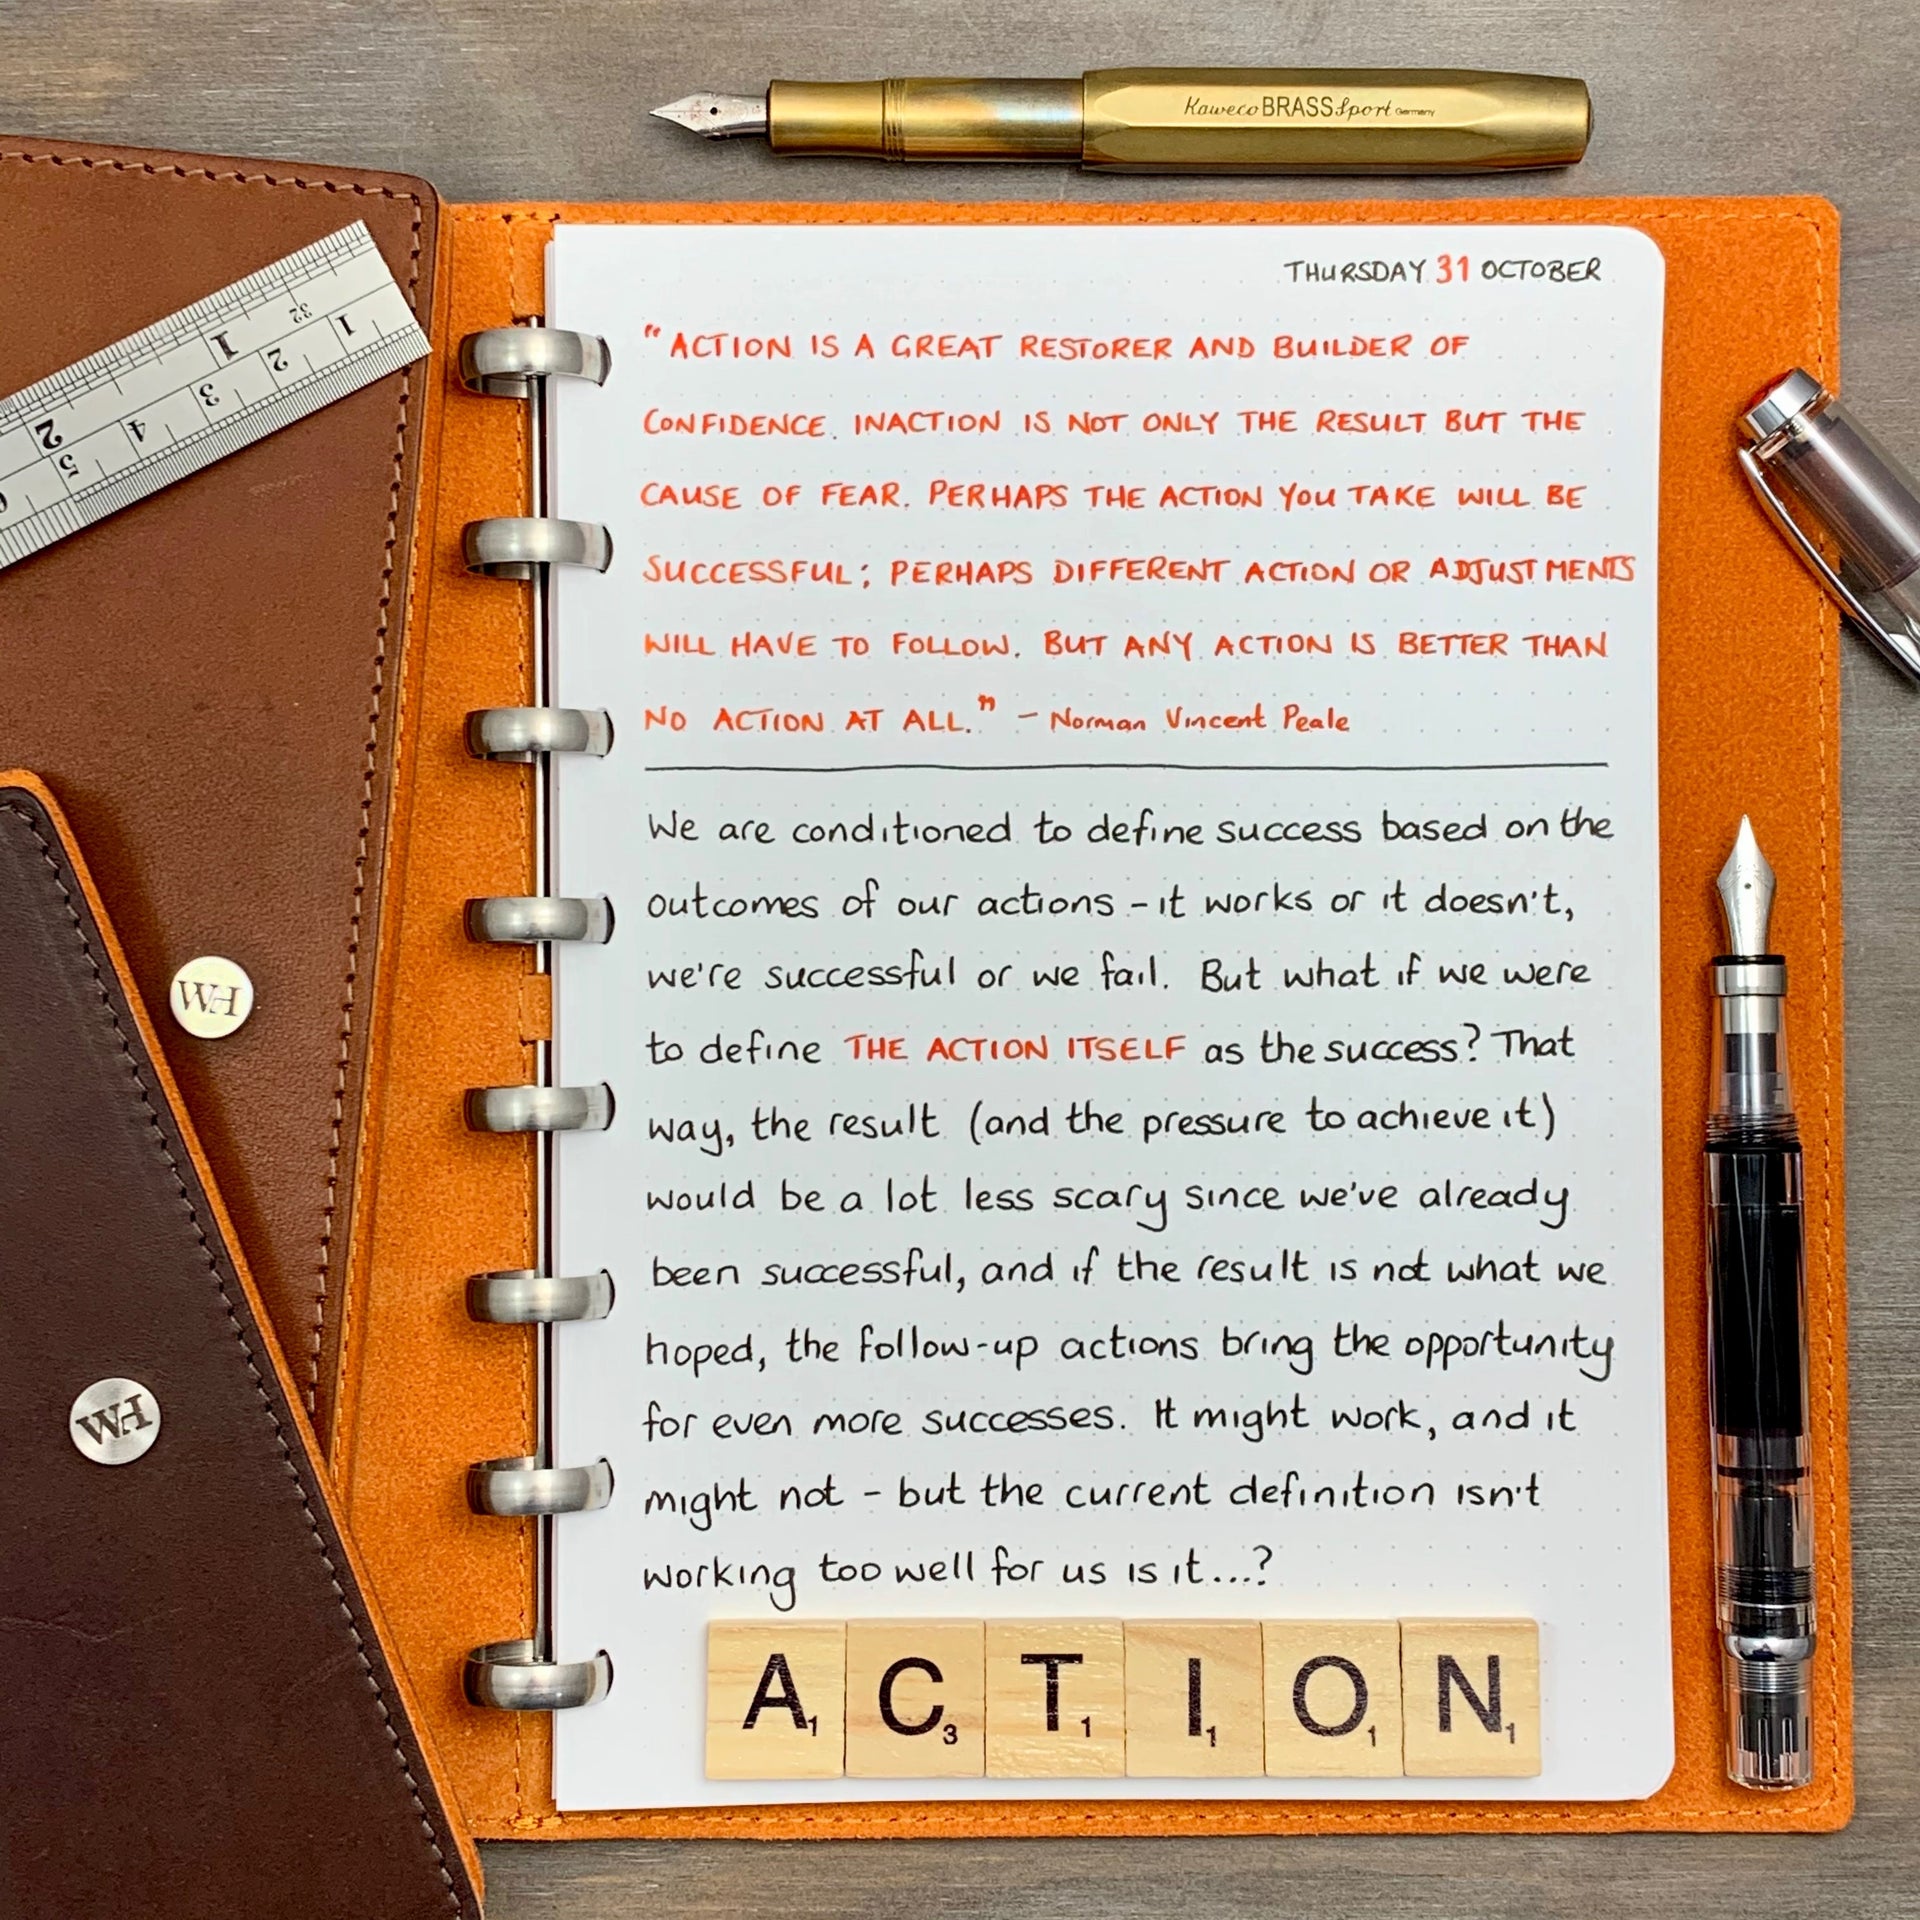 Kaweco BRASS Sport Germany
THURSDAY 31 OCTOBER
"ACTION IS A GREAT RESTORER AND BUILDER OF
CONFIDENCE. INACTION IS NOT ONLY THE RESULT BUT THE
CAUSE OF FEAR. PERHAPS THE ACTION YOU TAKE WILL BE
SUCCESSFUL; PERHAPS DIFFERENT ACTION OR ADJUSTMENTS
WILL HAVE TO FOLLOW. BUT ANY ACTION IS BETTER THAN
NO ACTION AT ALL." - Norman Vincent Peale
We are conditioned to define success based on the
outcomes of our actions - it works or it doesn't,
we're successful or we fail. But what if we were
to define THE ACTION ITSELF as the success? That
way, the result (and the pressure to achieve it)
would be a lot less scary since we've already
been successful, and if the result is not what we
hoped, the follow-up actions bring the opportunity
for even more successes. It might work, and it
might not - but the current definition isn't
working too well for us is it...?
A1 C3 T1 I1 O1 N1
1 32
2 1
1 2 3 4 5 6
WH
WH